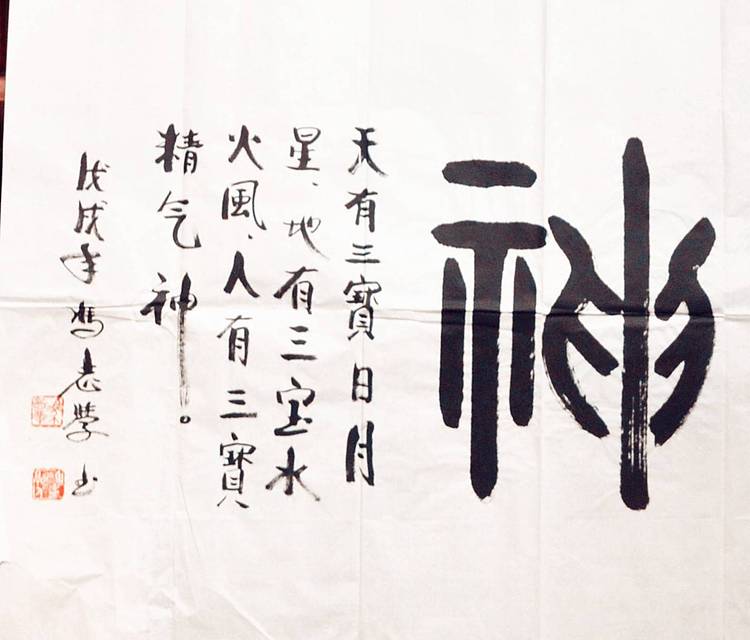 神
天有三寶日月
星、地有三宝水
火風、人有三寶
精气神。
戊戌年馮志學书